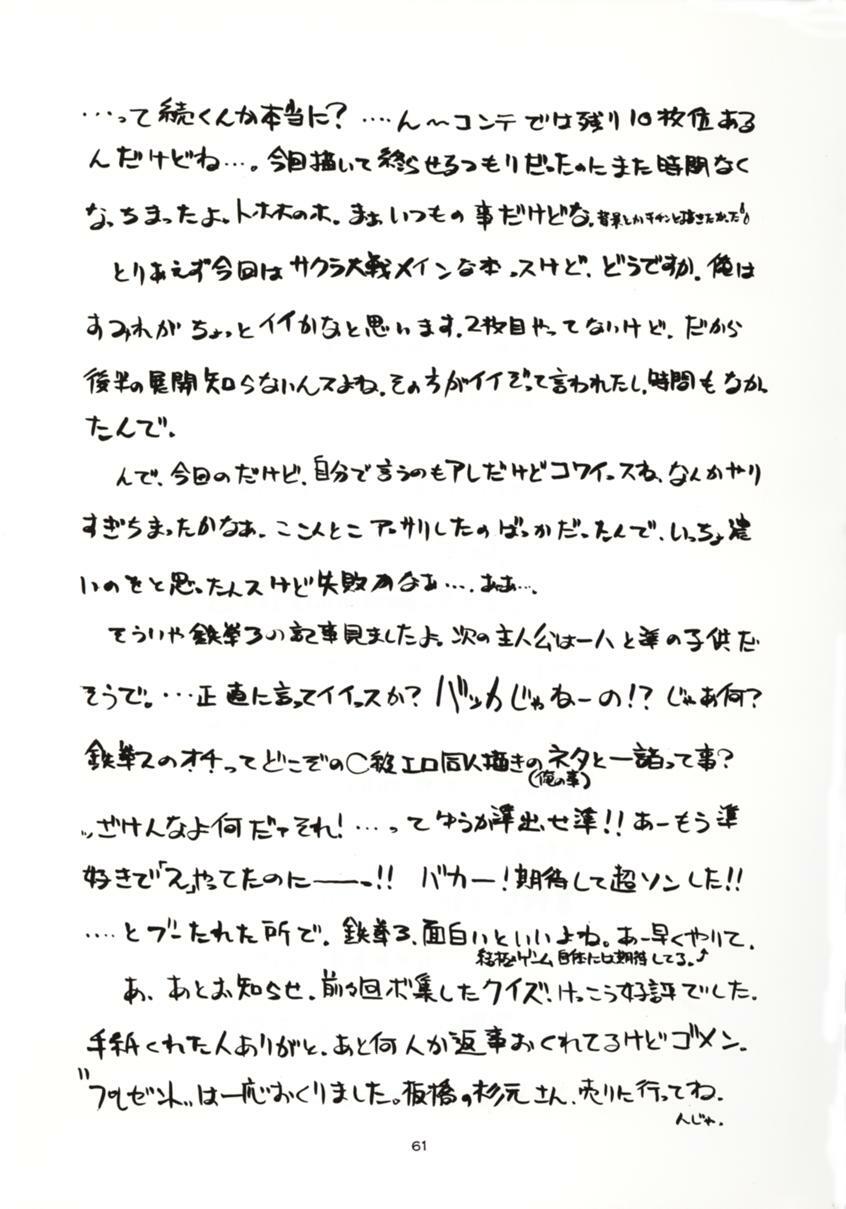 …って続くんか本当に?‥‥ん〜コンテでは残り10枚位ある
んだけどね…。今回描いて終らせるつもりだったのにまた時間なく
なっちまったよ。トホホのホ。まぁ、いつもの事だけどな。背景とかキチンと描きたかった
とりあえず今回はサクラ大戦メインな本っスけど、どうですか。俺は
すみれがちょっとイイかなと思います。2枚目やってないけど、だから
後半の展開知らないんスよね。その方がイイぞって言われたし、時間もなかっ
たんで。
んで、今回のだけど、自分で言うのもアレだけどコワイっスね、なんかやり
すぎちまったかなぁ。ここんとこアッサリしたのばっかだったんで、いっちょ濃
いのをと思ったんスけど失敗かなぁ…。ああ…。
そういや鉄拳3の記事見ましたよ。次の主人公は一八と準の子供だ
そうで。…正直に言ってイイっスか?バッカじゃねーの!?じゃあ何?
鉄拳2のオチってどこぞの〇流エロ同人描きのネタと一諸って事?
(俺の事)
ッざけんなよ何だァそれ!…ってゆうか準出せ準!!あーもう準
好きで「2」やってたのにーーっ!!バカー!期待して超ソンした!!
‥‥とブーたれた所で。鉄拳3、面白いといいよね。あー早くやりてぇ。
結局ゲーム自体には期待してる。↑
あ、あとお知らせ。前々回ボ集したクイズ、けっこう好評でした。
手紙くれた人ありがと。あと何人か返事おくれてるけどゴメン。
"プレゼント"は一応おくりました。板橋の杉元さん、売りに行ってね。
んじゃ。
61